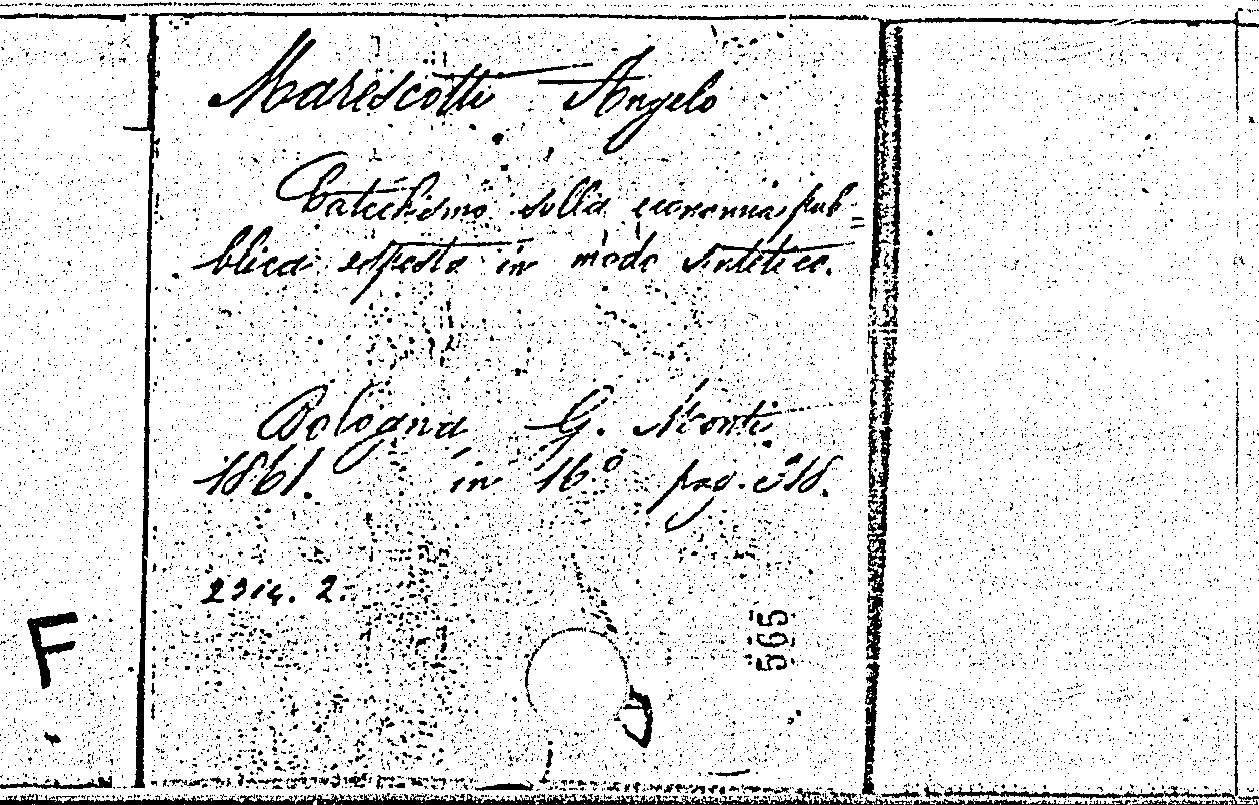 Marescotti Angelo
Catechismo sulla economia pub=
blica esposta in modo sintetico.
Bologna G. Monti
1861. in 16° pag. 318.
F
565